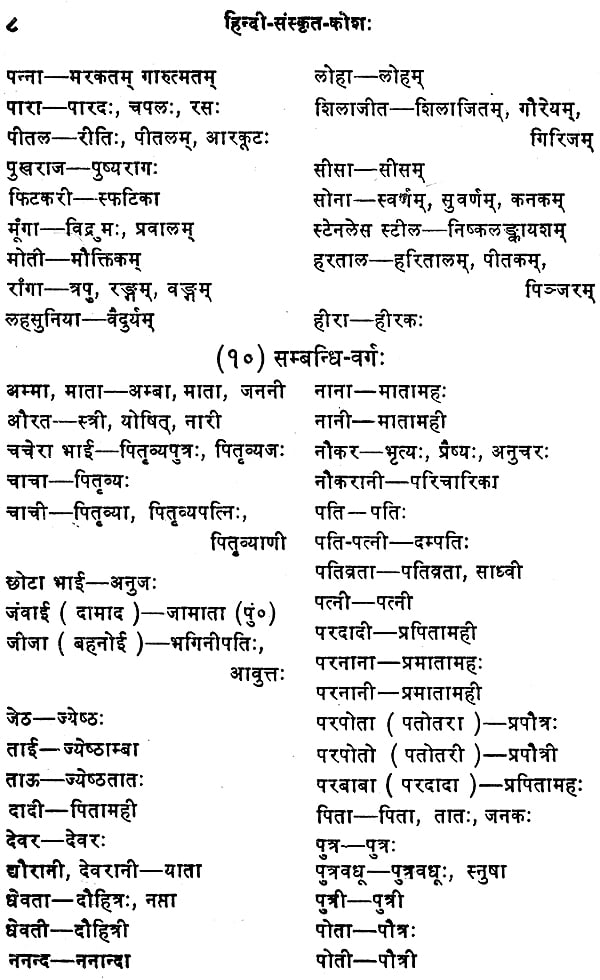 ८
हिन्दी-संस्कृत-कोशः
पन्ना—मरकतम् गारुत्मतम्
पारा—पारदः, चपलः, रसः
पीतल—रीतिः, पीतलम्, आरकूटः
पुखराज—पुष्यरागः
फिटकरी—स्फटिका
मूँगा—विद्रुमः, प्रवालम्
मोती—मौक्तिकम्
राँगा—त्रपु, रङ्गम्, वङ्गम्
लहसुनिया—वैदुर्यम्
लोहा—लोहम्
शिलाजीत—शिलाजितम्, गौरेयम्,
गिरिजम्
सीसा—सीसम्
सोना—स्वर्णम्, सुवर्णम्, कनकम्
स्टेनलेस स्टील—निष्कलङ्कायशम्
हरताल—हरितालम्, पीतकम्,
पिञ्जरम्
हीरा—हीरकः
(१०) सम्बन्धि-वर्गः
अम्मा, माता—अम्बा, माता, जननी
औरत—स्त्री, योषित्, नारी
चचेरा भाई—पितृव्यपुत्रः, पितृव्यजः
चाचा—पितृव्यः
चाची—पितृव्या, पितृव्यपत्निः,
पितृव्याणी
छोटा भाई—अनुजः
जंवाई ( दामाद )—जामाता (पुं०)
जीजा ( बहनोई )—भगिनीपतिः,
आवुत्तः
जेठ—ज्येष्ठः
ताई—ज्येष्ठाम्बा
ताऊ—ज्येष्ठतातः
दादी—पितामही
देवर—देवरः
द्यौरानी, देवरानी—याता
धेवता—दौहित्रः, नप्ता
धेवती—दौहित्री
ननन्द—ननान्दा
नाना—मातामहः
नानी—मातामही
नौकर—भृत्यः, प्रैष्यः, अनुचरः
नौकरानी—परिचारिका
पति—पतिः
पति-पत्नी—दम्पतिः
पतिव्रता—पतिव्रता, साध्वी
पत्नी—पत्नी
परदादी—प्रपितामही
परनाना—प्रमातामहः
परनानी—प्रमातामही
परपोता ( पतोतरा )—प्रपौत्रः
परपोतो ( पतोतरी )—प्रपौत्री
परबाबा ( परदादा )—प्रपितामहः
पिता—पिता, तातः, जनकः
पुत्र—पुत्रः
पुत्रवधू—पुत्रवधूः, स्नुषा
पुत्री—पुत्री
पोता—पौत्रः
पोती—पौत्री